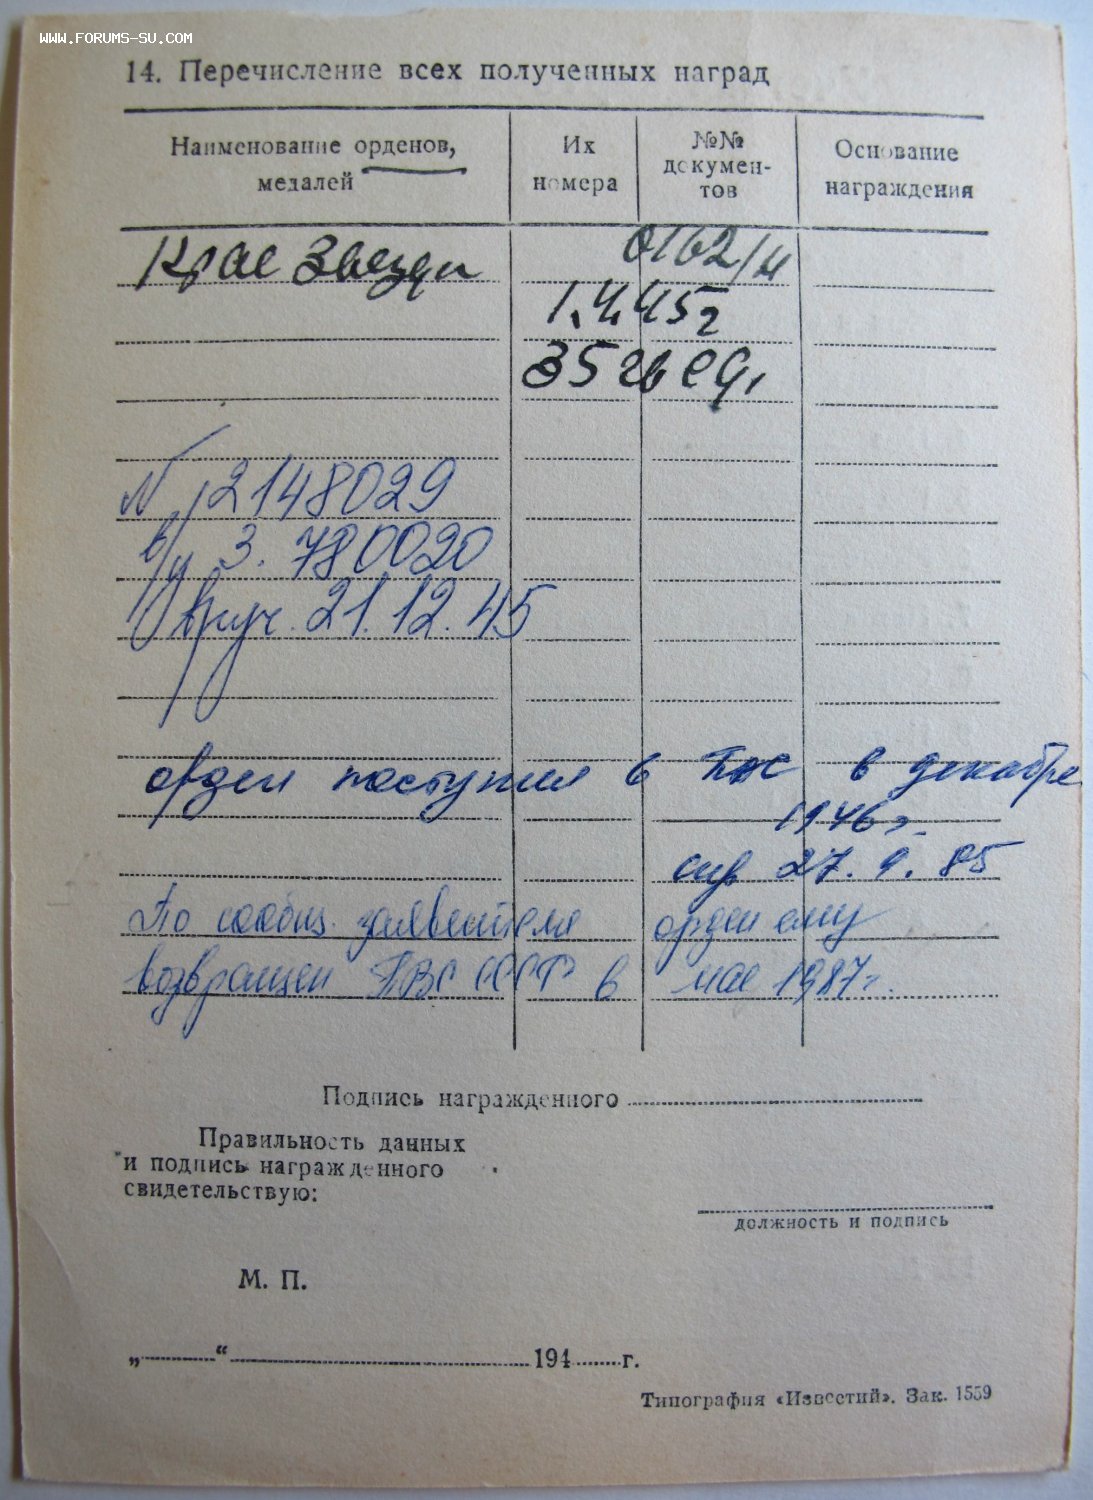 WWW.FORUMS-SU.COM
14. Перечисление всех полученных наград
Наименование орденов, медалей
Их номера
№№ докумен-тов
Основание награждения
Крас Звезды 0162/н
1.4.45г
35 гв сд,
№ 2148029
в/у З. 780020
Вруч. 21.12.45
орден поступил в в декабре
1946г.
27.9.85
По сообщ. заявителя орден ему
возвращен ПВС СССР в мае 1987г.
Подпись награжденного
Правильность данных
и подпись награжденного
свидетельствую:
должность и подпись
М. П.
„ “ 194 г.
Типография «Известий». Зак. 1559